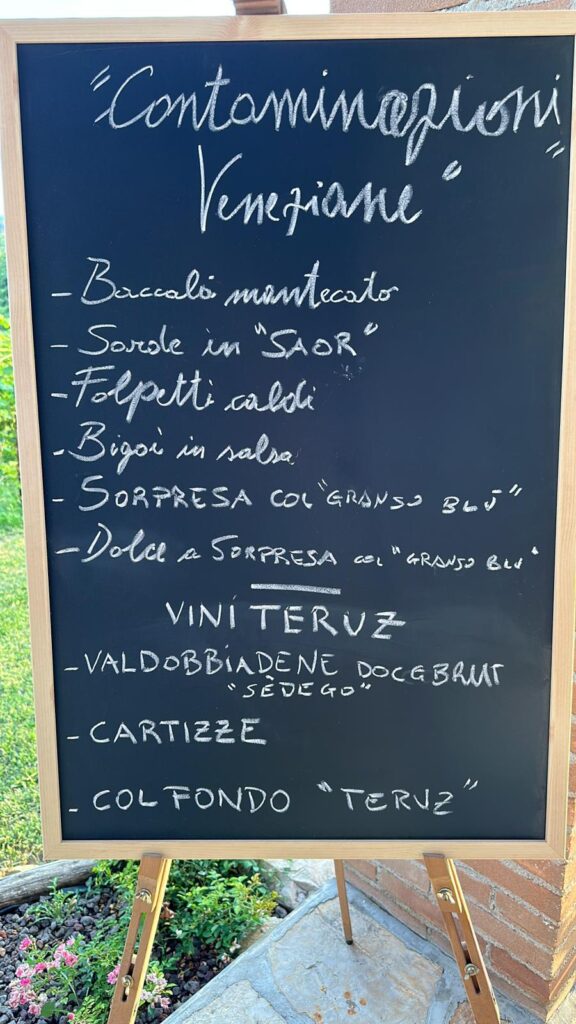 "Contaminazioni
Veneziane"
- Baccalà mantecato
- Sarde in "SAOR"
- Folpetti caldi
- Bigoi in salsa
- SORPRESA COL "GRANSO BLÙ"
- Dolce a SORPRESA COL "GRANSO BLÙ"
VINI TERUZ
- VALDOBBIADENE DOCG BRUT
"SÈDEGO"
- CARTIZZE
- COL FONDO "TERUZ"